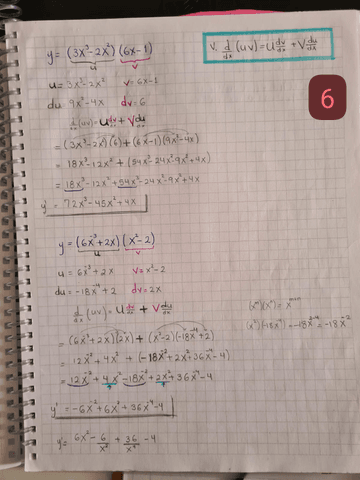 y = (3x³-2x²) (6x-1)
u v
V. d/dx (uv) = u dv/dx + v du/dx
u = 3x³-2x² v = 6x-1
du 9x²-4x dv = 6
6
d/dx (uv) = u dv/dx + v du/dx
= (3x³-2x²)(6) + (6x-1)(9x²-4x)
= 18x³-12x² + (54x³-24x²-9x²+4x)
= 18x³-12x²+54x³-24x²-9x²+4x
y' = 72x³-45x²+4x
y = (6x⁻³+2x) (x²-2)
u v
u = 6x⁻³+2x v = x²-2
du = -18x⁻⁴+2 dv = 2x
d/dx (uv) = u dv/dx + v du/dx
(xᵐ)(xⁿ) = xᵐ⁺ⁿ
= (6x⁻³+2x)(2x) + (x²-2)(-18x⁻⁴+2)
(x²)(-18x⁻⁴) = -18x²⁻⁴ = -18x⁻²
= 12x⁻² + 4x² + (-18x⁻²+2x²+36x⁻⁴-4)
= 12x⁻²+4x²-18x⁻²+2x²+36x⁻⁴-4
y' = -6x⁻²+6x²+36x⁻⁴-4
y' = 6x² - 6/x² + 36/x⁴ - 4